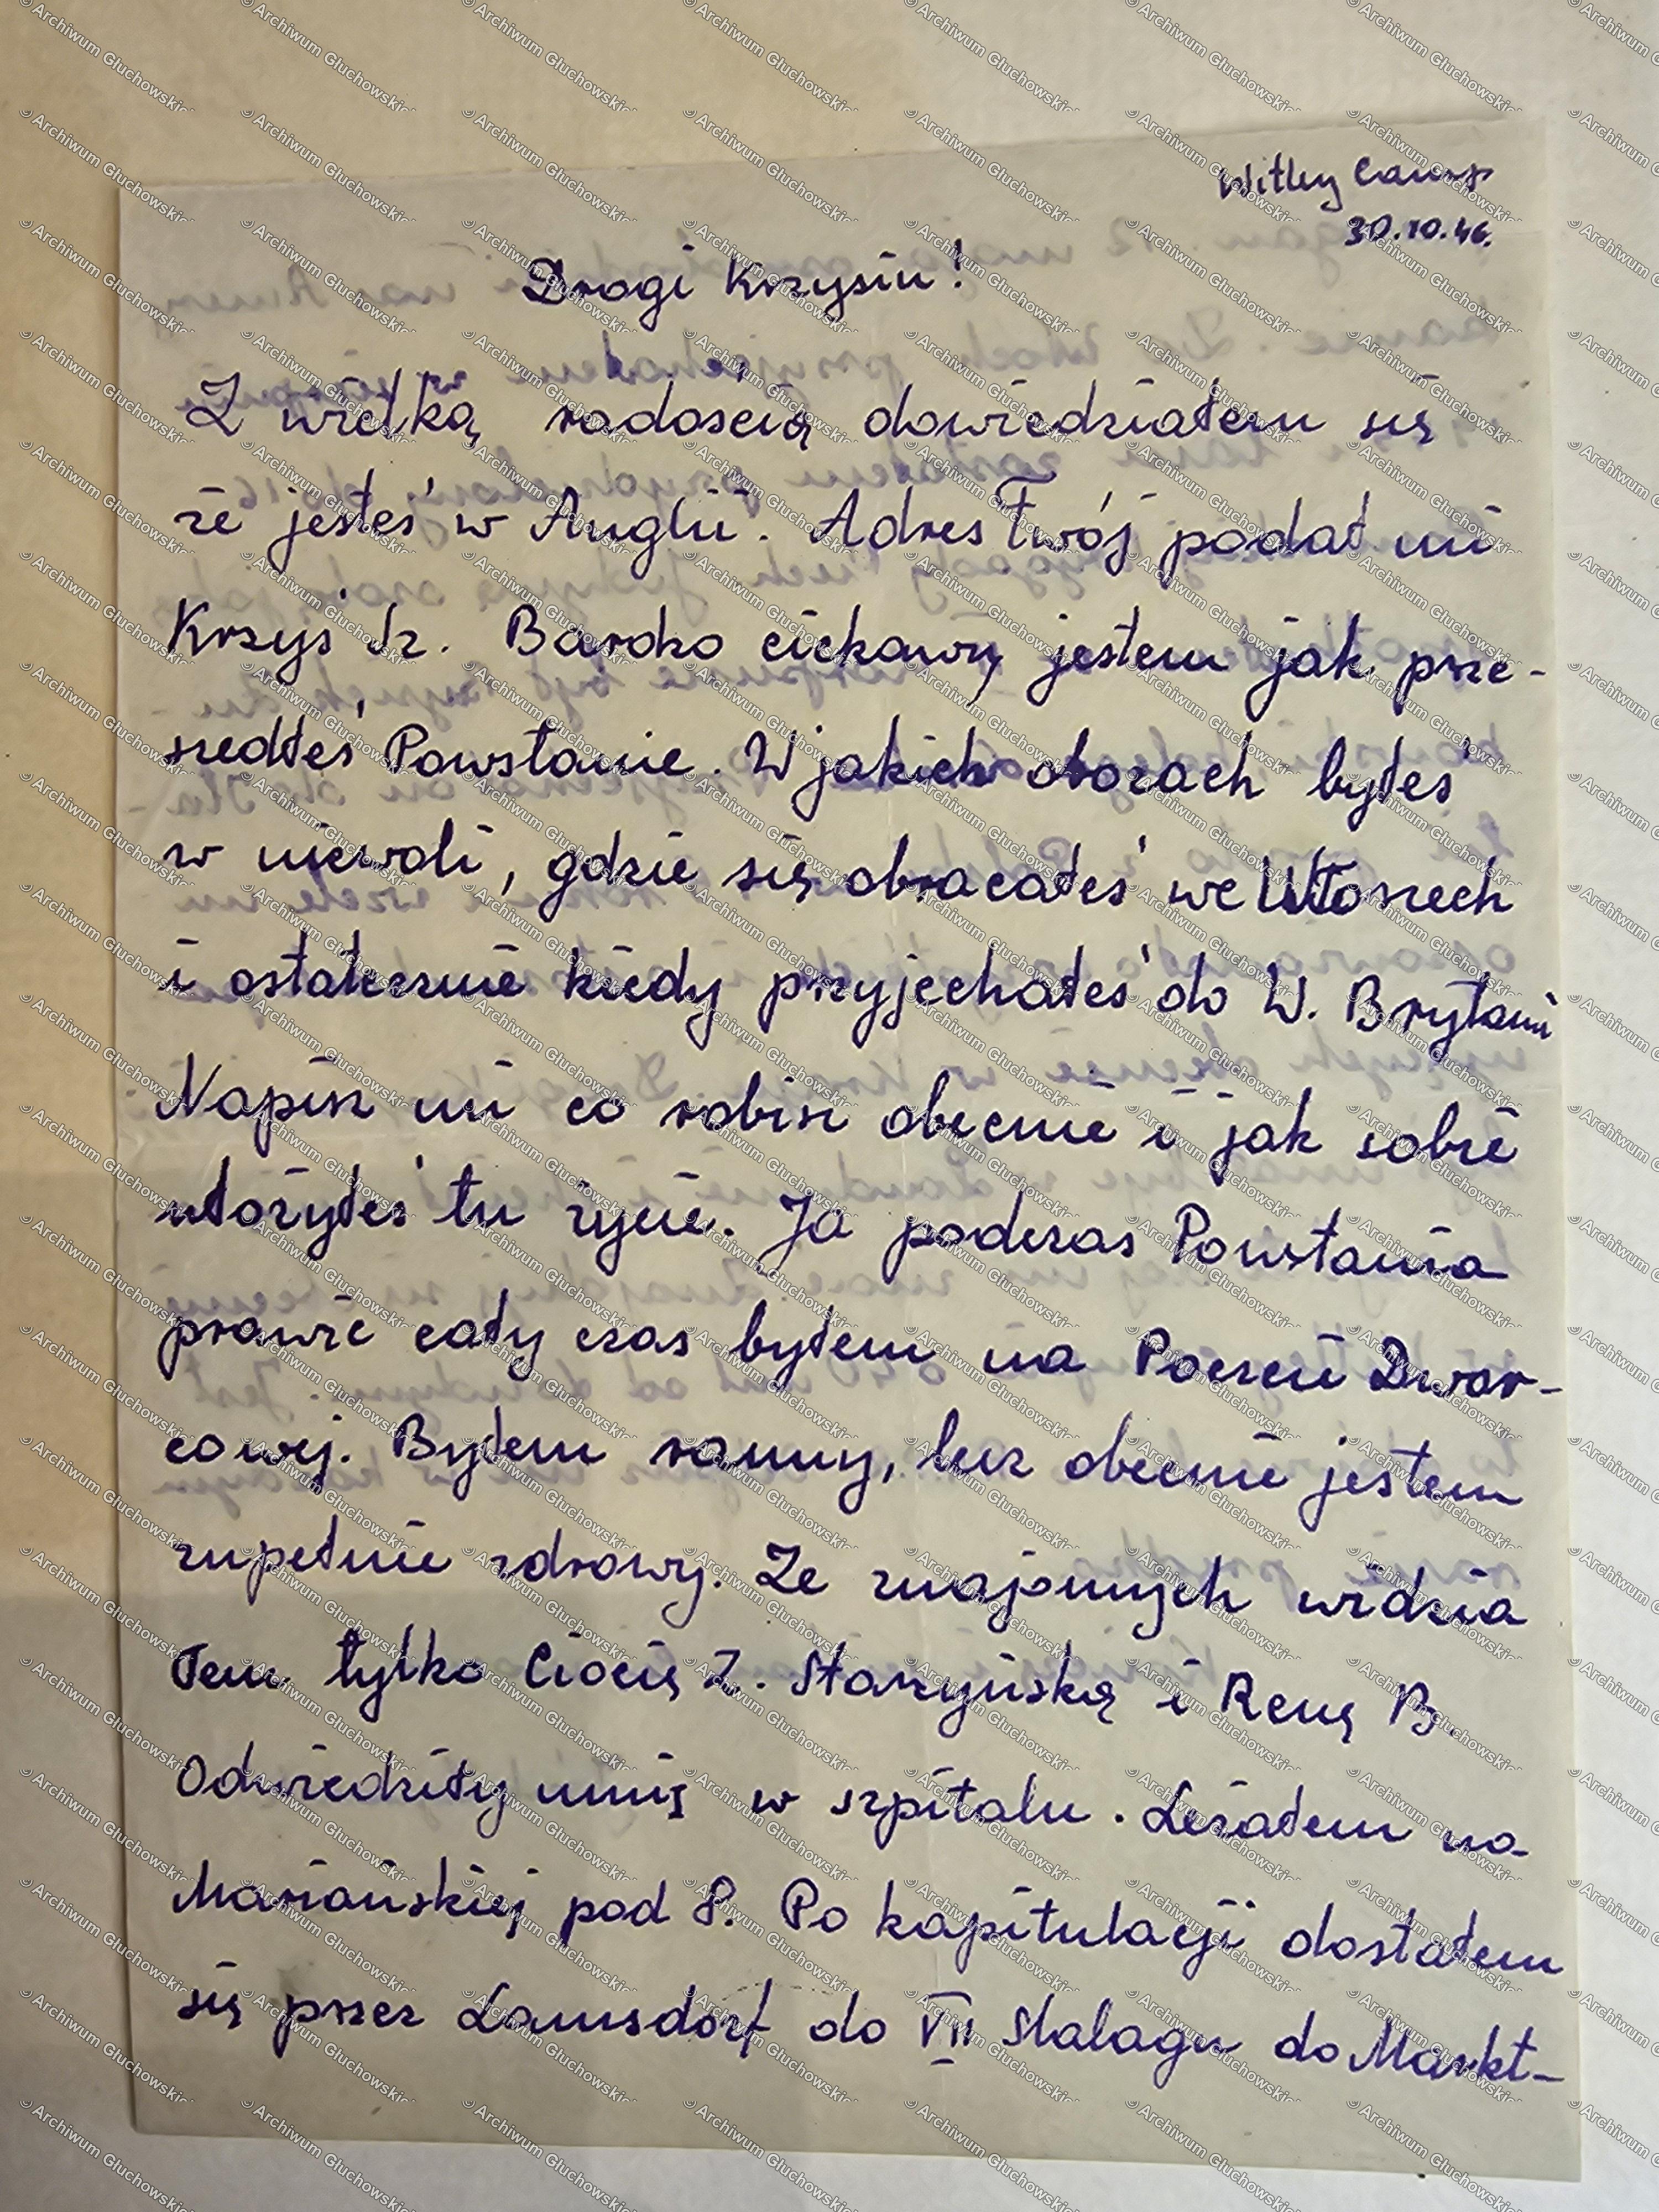 Witley Camp
30.10.46.
Drogi Krzysiu!
Z wielką radością dowiedziałem się
że jesteś w Anglii. Adres Twój podał mi
Krzyś Sz. Bardzo ciekawy jestem jak prze-
szedłeś Powstanie. W jakich obozach byłeś
w niewoli, gdzie się obracałeś we Włoszech
i ostatecznie kiedy przyjechałeś do W. Brytani
Napisz mi co robisz obecnie i jak sobie
ułożyłeś tu życie. Ja podczas Powstania
prawie cały czas byłem na Poczcie Dwor-
cowej. Byłem ranny, lecz obecnie jestem
zupełnie zdrowy. Ze znajomych widzia
łem tylko Ciocię Z. Starzyńską i Renę B.
Odwiedziły mnię w szpitalu. Leżałem na
Mariańskiej pod 8. Po kapitulacji dostałem
się przez Lamsdorf do VII Stalagu do Markt-
© Archiwum Głuchowskie